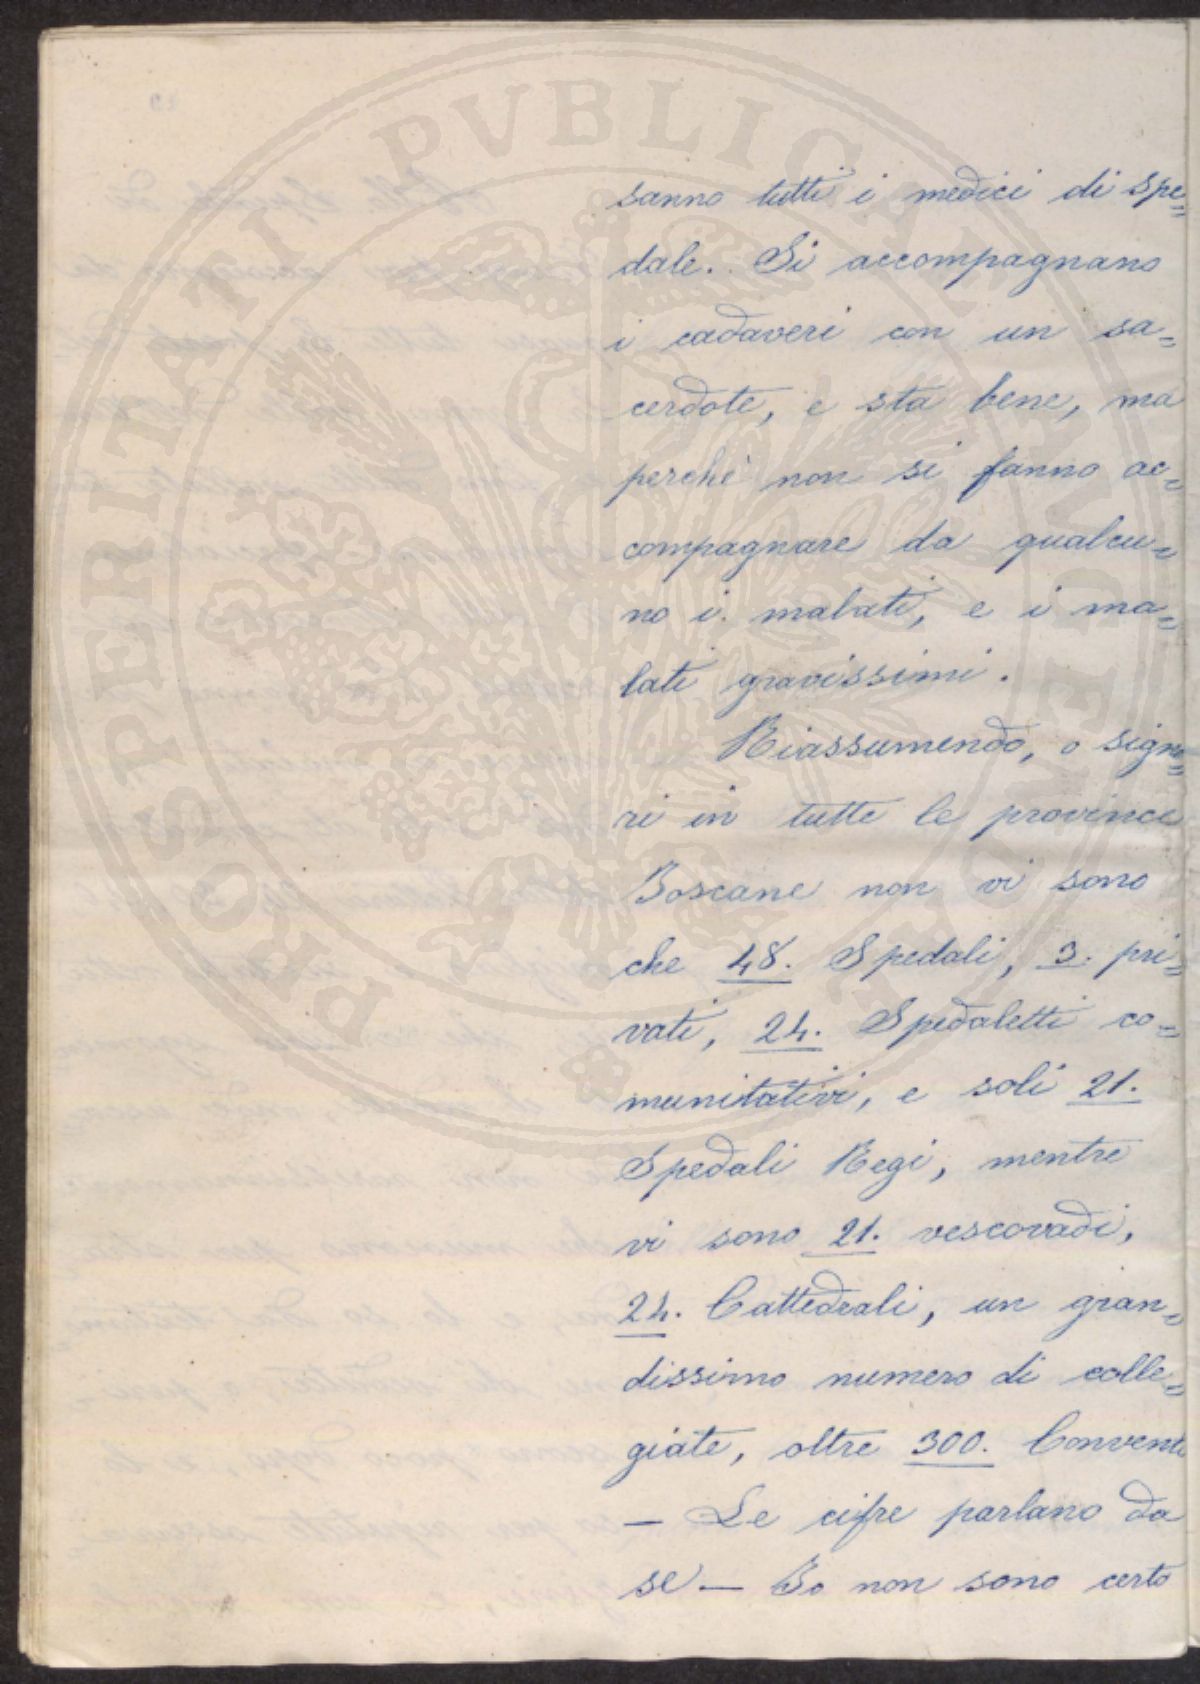 PROSPERITATI PVBLICAE AVGENDAE
sanno tutti i medici di spe=
dale. Si accompagnano
i cadaveri con un sa=
cerdote, e sta bene, ma
perchè non si fanno ac=
compagnare da qualcu=
no i malati, e i ma=
lati gravissimi.
Riassumendo, o signo=
ri in tutte le province
Toscane non vi sono
che 48. Spedali, 3. pri=
vati, 24. Spedaletti co=
munitativi, e soli 21.
Spedali Regi, mentre
vi sono 21. vescovadi,
24. Cattedrali, un gran=
dissimo numero di colle=
giate, oltre 300. Conventi
— Le cifre parlano da
se — Io non sono certo